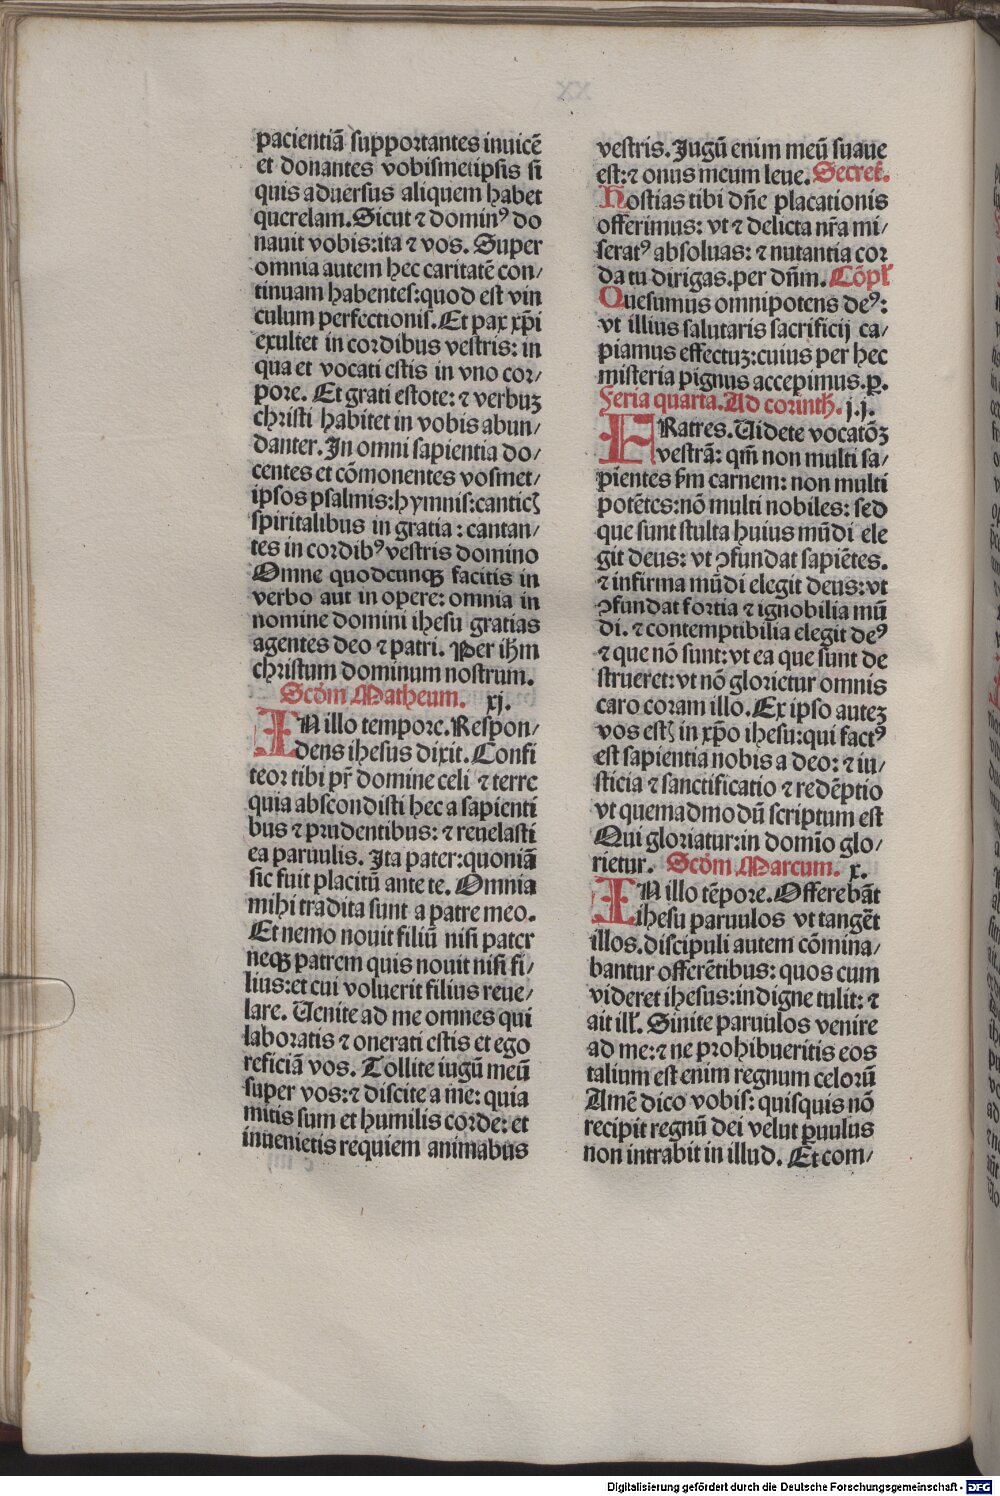 pacientiā supportantes inuicē
et donantes vobismetipsis si
quis aduersus aliquem habet
querelam. Sicut ⁊ dominꝰ do
nauit vobis: ita ⁊ vos. Super
omnia autem hec caritatē con/
tinuam habentes: quod est vin
culum perfectionis. Et pax xp̄i
exultet in cordibus vestris: in
qua et vocati estis in vno cor/
pore. Et grati estote: ⁊ verbuꝫ
christi habitet in vobis abun/
danter. In omni sapientia do/
centes et cōmonentes vosmet/
ipsos psalmis: hymnis: canticꝭ
spiritalibus in gratia: cantan/
tes in cordibꝰ vestris domino
Omne quodcunqꝫ facitis in
verbo aut in opere: omnia in
nomine domini ihesu gratias
agentes deo ⁊ patri. Per ihm
christum dominum nostrum.
Scōm Matheum. xj.
IN illo tempore. Respon/
dens ihesus dixit. Confi
teor tibi pr̄ domine celi ⁊ terre
quia abscondisti hec a sapienti
bus ⁊ prudentibus: ⁊ reuelasti
ea paruulis. Ita pater: quoniā
sic fuit placitū ante te. Omnia
mihi tradita sunt a patre meo.
Et nemo nouit filiū nisi pater
neqꝫ patrem quis nouit nisi fi/
lius: et cui voluerit filius reue/
lare. Uenite ad me omnes qui
laboratis ⁊ onerati estis et ego
reficiā vos. Tollite iugū meū
super vos: ⁊ discite a me: quia
mitis sum et humilis corde: et
inuenietis requiem animabus
vestris. Jugū enim meū suaue
est: ⁊ onus meum leue. Secret.
Hostias tibi dn̄e placationis
offerimus: vt ⁊ delicta nr̄a mi/
seratꝰ absoluas: ⁊ nutantia cor
da tu dirigas. per dn̄m. Cōpl'
Quesumus omnipotens deꝰ:
vt illius salutaris sacrificij ca/
piamus effectuꝫ: cuius per hec
misteria pignus accepimus. ꝑ.
Feria quarta. Ad corinth. j. j.
FRatres. Uidete vocatōꝫ
vestrā: qm̄ non multi sa/
pientes ẜm carnem: non multi
potētes: nō multi nobiles: sed
que sunt stulta huius mūdi ele
git deus: vt ꝯfundat sapiētes.
⁊ infirma mūdi elegit deus: vt
ꝯfundat fortia ⁊ ignobilia mū
di. ⁊ contemptibilia elegit deꝰ
⁊ que nō sunt: vt ea que sunt de
strueret: vt nō glorietur omnis
caro coram illo. Ex ipso auteꝫ
vos estꝭ in xp̄o ihesu: qui factꝰ
est sapientia nobis a deo: ⁊ iu/
sticia ⁊ sanctificatio ⁊ redēptio
vt quemadmodū scriptum est
Qui gloriatur: in domīo glo/
rietur. Scōm Marcum. x.
IN illo tēpore. Offerebāt
ihesu paruulos vt tangēt
illos. discipuli autem cōmina/
bantur offerētibus: quos cum
videret ihesus: indigne tulit: ⁊
ait ill'. Sinite paruulos venire
ad me: ⁊ ne prohibueritis eos
talium est enim regnum celorū
Amē dico vobis: quisquis nō
recipit regnū dei velut ꝑuulus
non intrabit in illud. Et com/
Digitalisierung gefördert durch die Deutsche Forschungsgemeinschaft - DFG